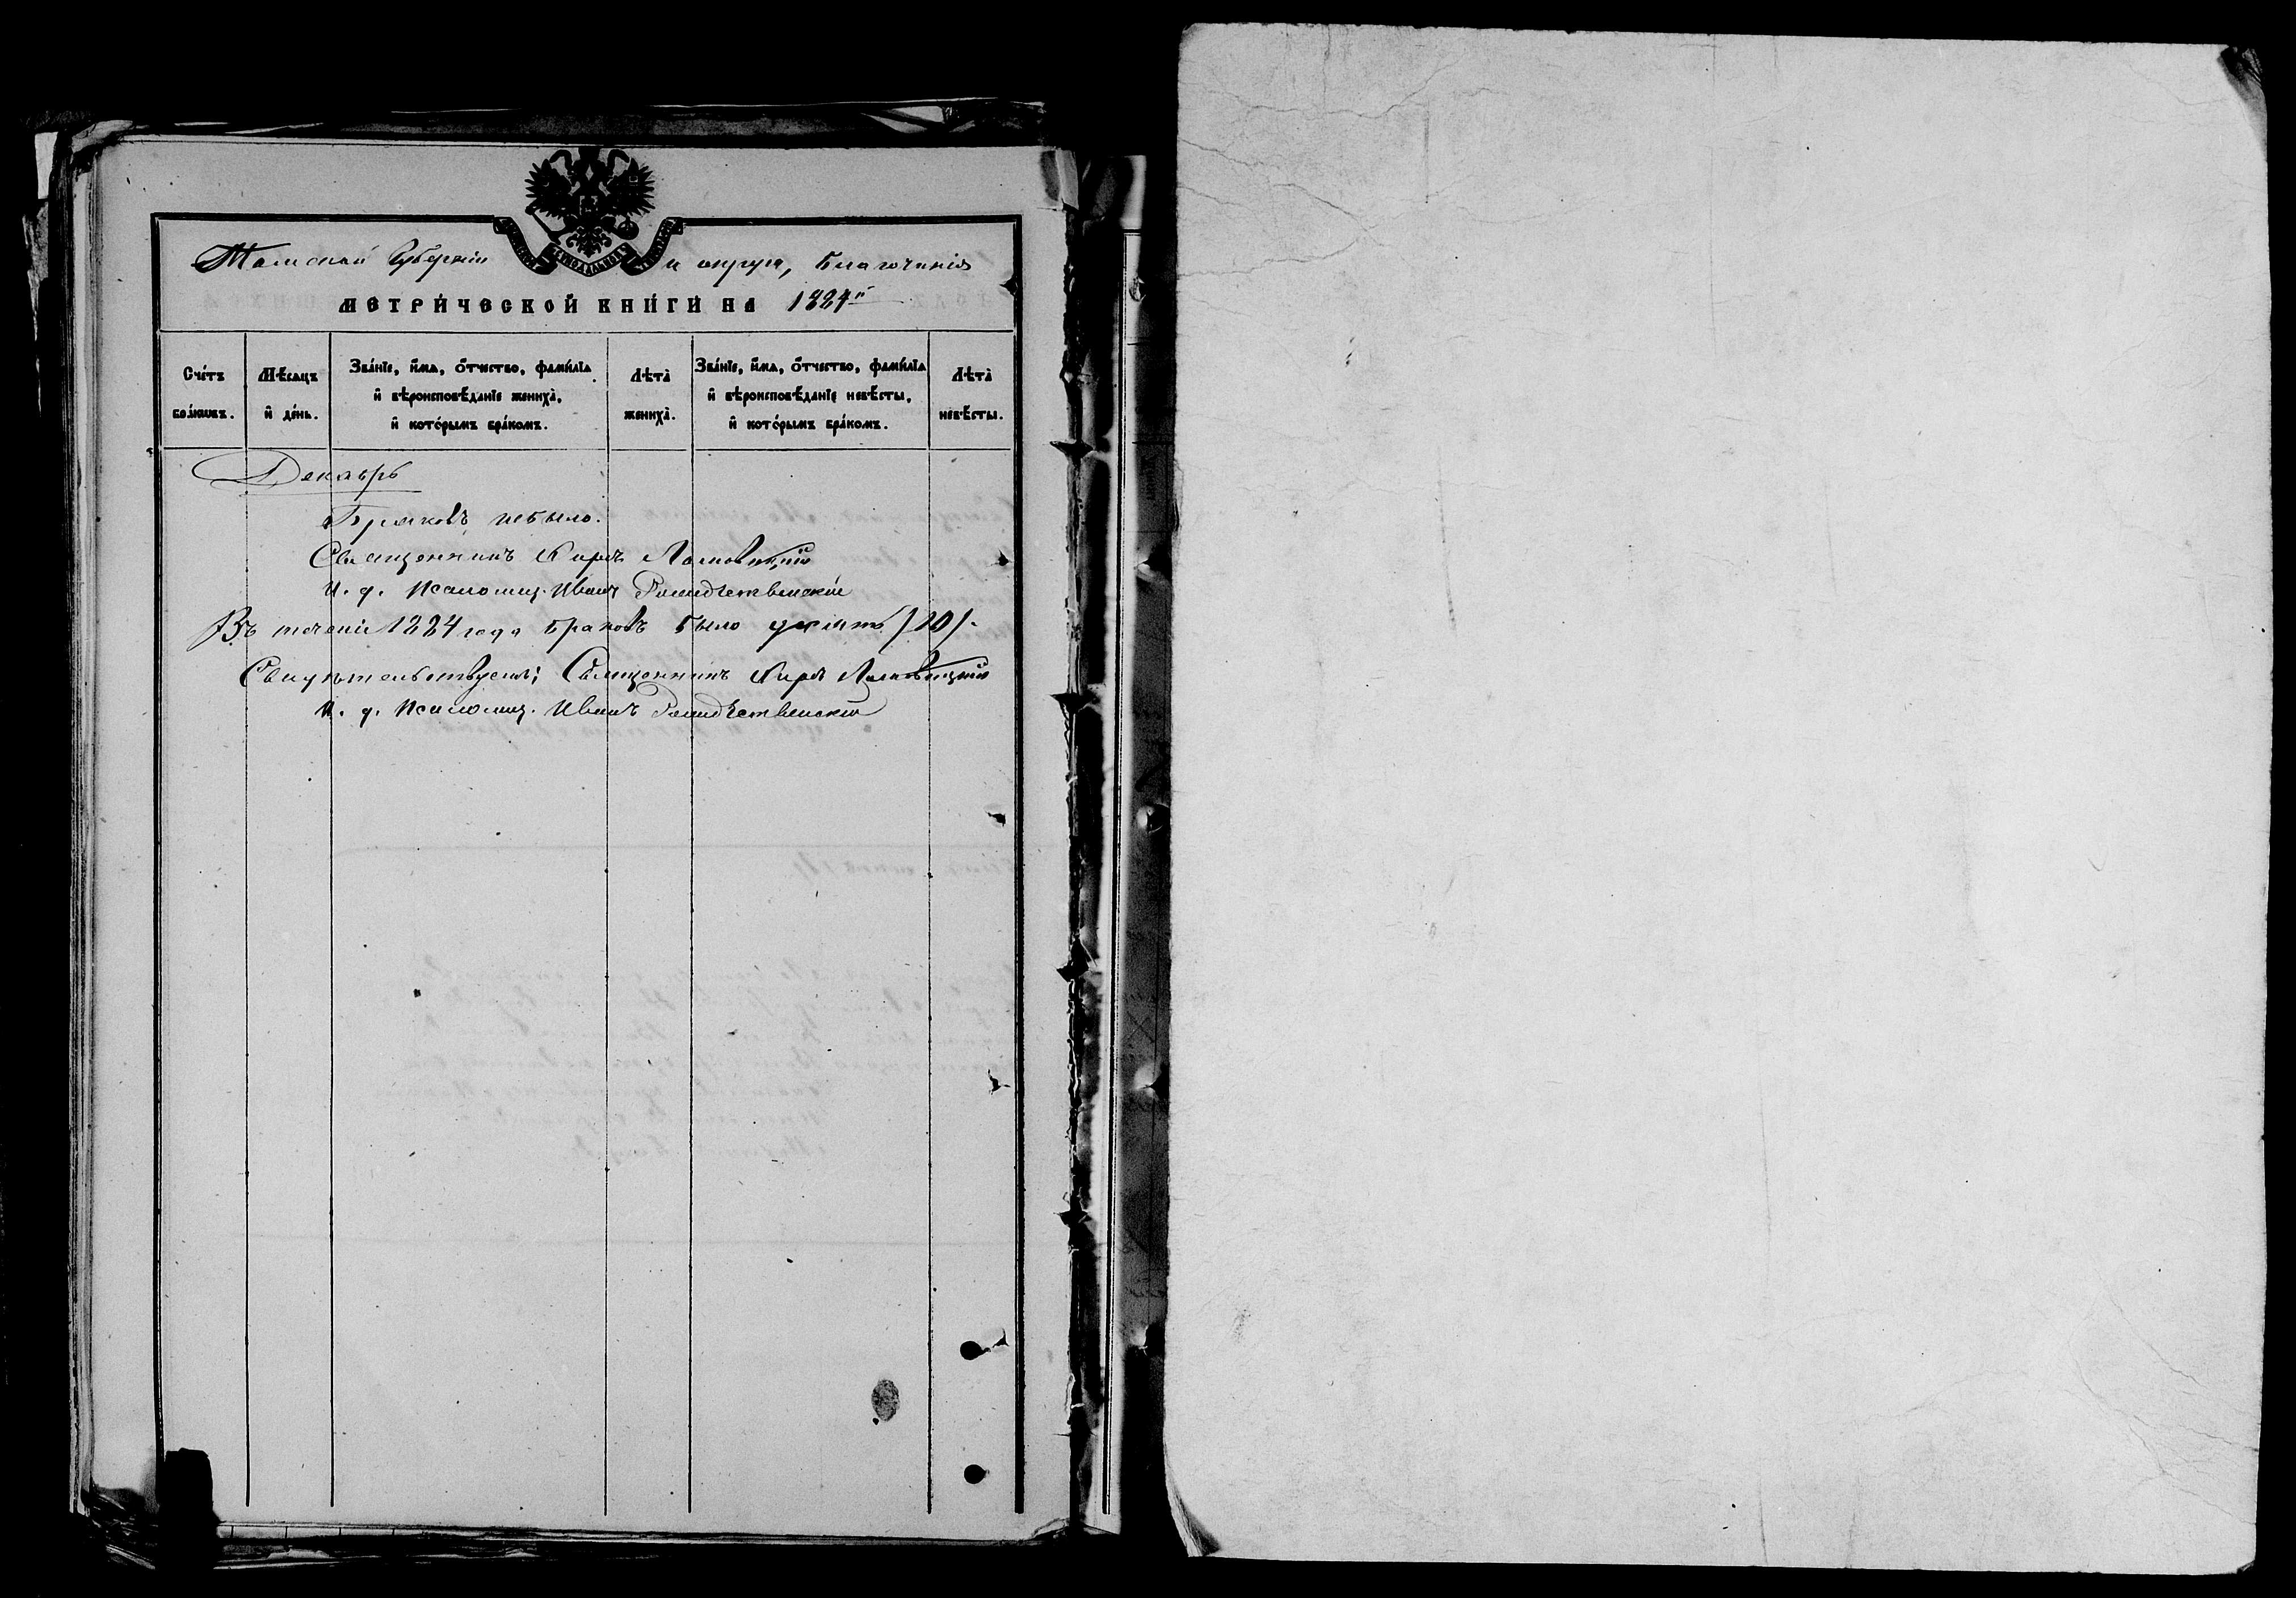 Томской Губерніи и округа, благочинія
МЕТРИЧЕСКОЙ КНИГИ НА 1884й
Счетъ браковъ.
Мѣсяцъ и день.
Званіе, имя, отчество, фамилія и вѣроисповѣданіе жениха, и которымъ бракомъ.
Лѣта жениха.
Званіе, имя, отчество, фамилія и вѣроисповѣданіе невѣсты, и которымъ бракомъ.
Лѣта невѣсты.
Декабрь
Браковъ небыло.
Священникъ Киръ
И. д. псаломщ. Иванъ Рождественскій
Въ теченіи 1884 года браковъ было десять /10/.
Свидѣтельствуемъ: Священникъ Киръ
И. д. псаломщ. Иванъ Рождественскій